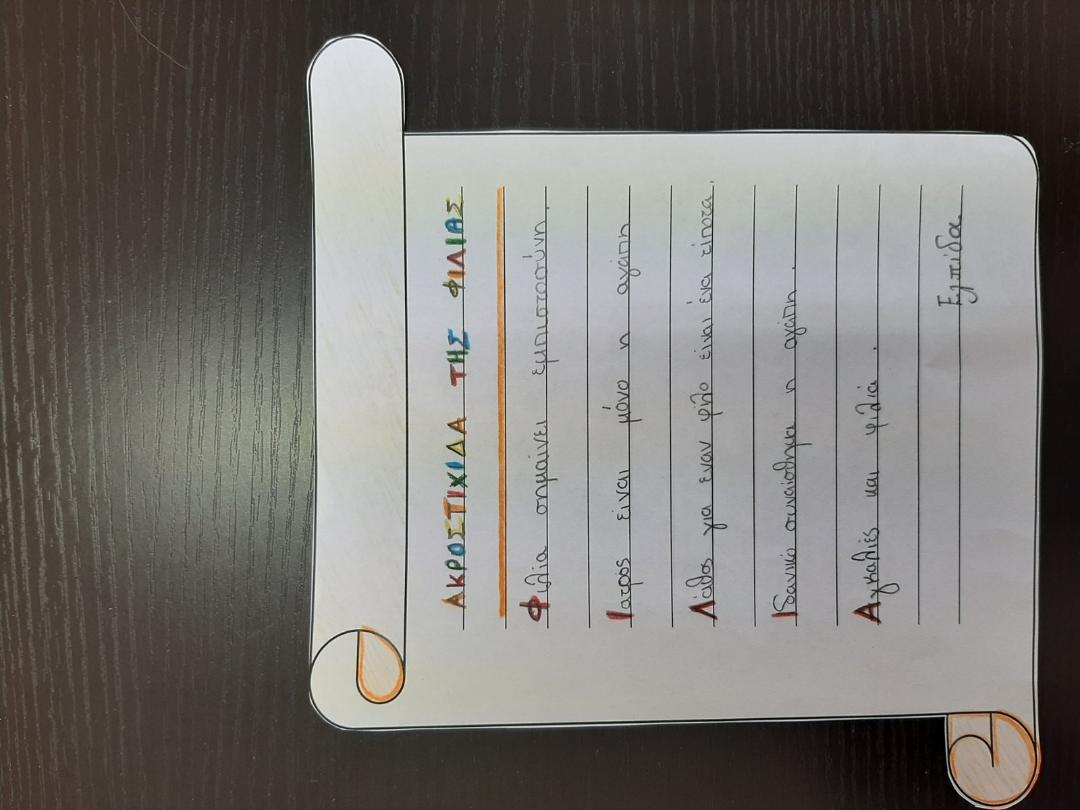 ΑΚΡΟΣΤΙΧΙΔΑ ΤΗΣ ΦΙΛΙΑΣ
Φιλία σημαίνει εμπιστοσύνη.
Ιατρός είναι μόνο η αγάπη
Λάθος για εναν φίλο είναι ένα τίποτα.
Ιδανικό συναίσθημα η αγάπη.
Αγκαλιές και φιλιά.
Ελπίδα